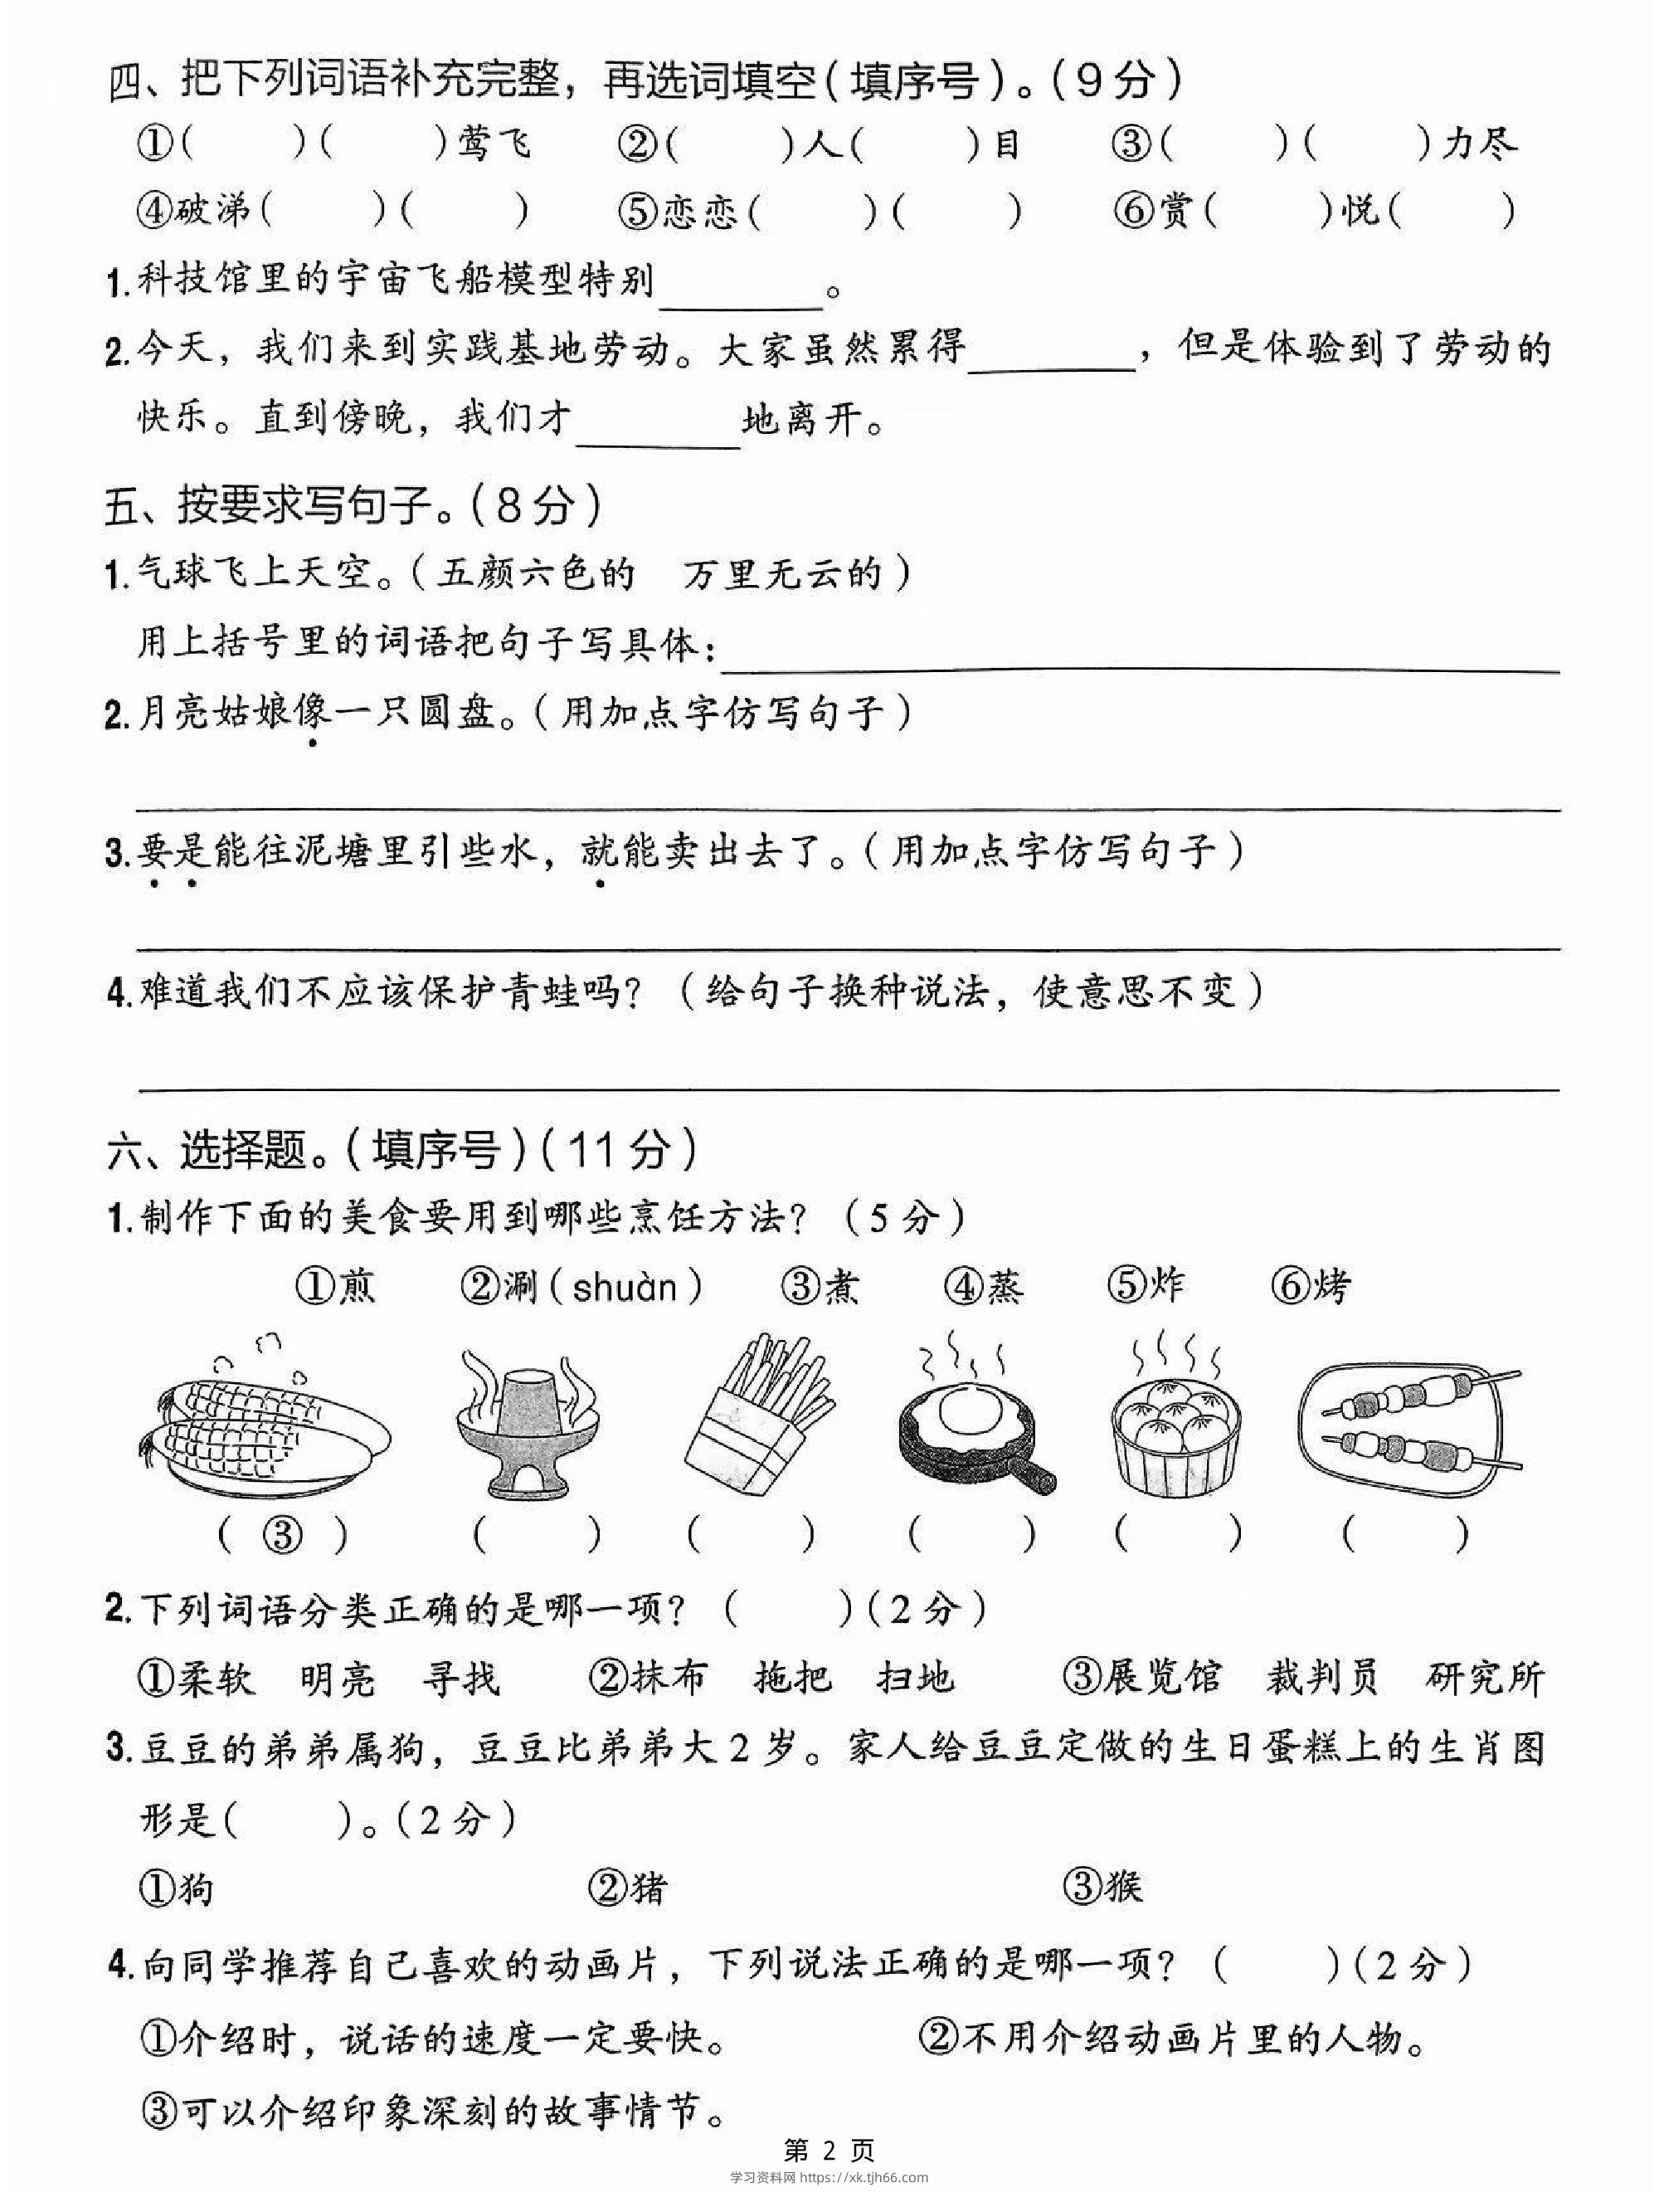 四、把下列词语补充完整，再选词填空(填序号)。(9分)
①(　　)(　　)莺飞　②(　　)人(　　)目　③(　　)(　　)力尽
④破涕(　　)(　　)　⑤恋恋(　　)(　　)　⑥赏(　　)悦(　　)
1.科技馆里的宇宙飞船模型特别________。
2.今天，我们来到实践基地劳动。大家虽然累得________，但是体验到了劳动的
快乐。直到傍晚，我们才________地离开。
五、按要求写句子。(8分)
1.气球飞上天空。(五颜六色的　万里无云的)
用上括号里的词语把句子写具体:________
2.月亮姑娘像一只圆盘。(用加点字仿写句子)
3.要是能往泥塘里引些水，就能卖出去了。(用加点字仿写句子)
4.难道我们不应该保护青蛙吗？(给句子换种说法，使意思不变)
六、选择题。(填序号)(11分)
1.制作下面的美食要用到哪些烹饪方法？(5分)
①煎　②涮(shuàn)　③煮　④蒸　⑤炸　⑥烤
(③)　(　　)　(　　)　(　　)　(　　)　(　　)
2.下列词语分类正确的是哪一项？(　　)(2分)
①柔软　明亮　寻找　②抹布　拖把　扫地　③展览馆　裁判员　研究所
3.豆豆的弟弟属狗，豆豆比弟弟大2岁。家人给豆豆定做的生日蛋糕上的生肖图
形是(　　)。(2分)
①狗　②猪　③猴
4.向同学推荐自己喜欢的动画片，下列说法正确的是哪一项？(　　)(2分)
①介绍时，说话的速度一定要快。　②不用介绍动画片里的人物。
③可以介绍印象深刻的故事情节。
第 2 页
学习资料网 https://xk.tjh66.com